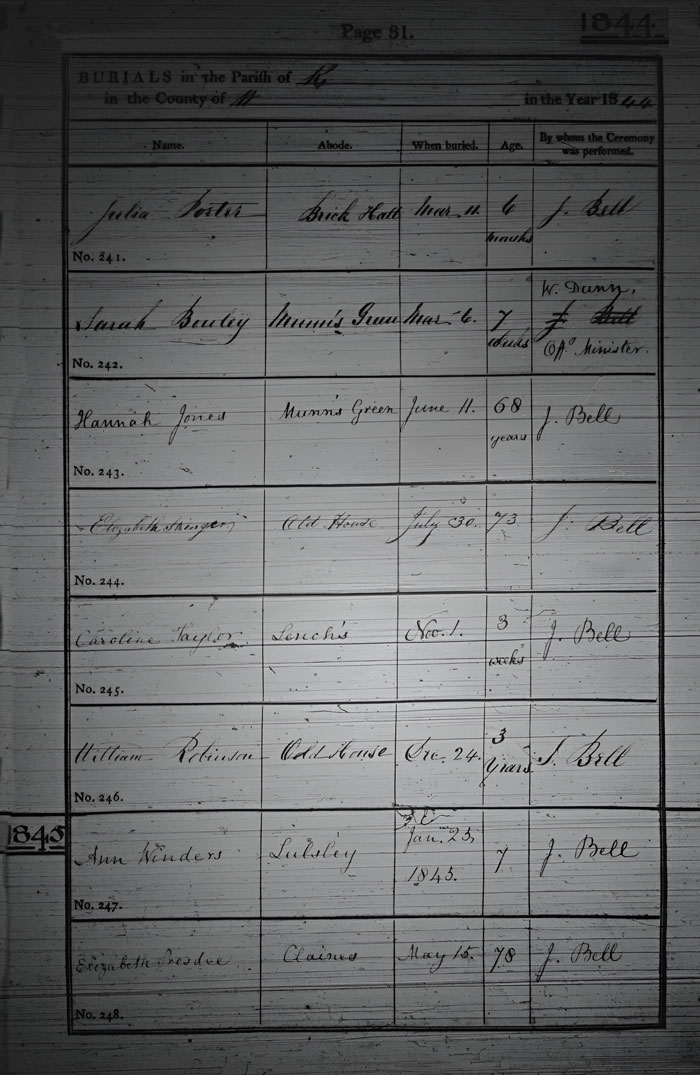 Page 31.
1844.
BURIALS in the Parish of K
in the County of W in the Year 1844
Name. Abode. When buried. Age. By whom the Ceremony was performed.
Julia Porter Brick Hall Mar. 11. 6 months J. Bell
No. 241.
Sarah Bowley Munn's Green Mar. 6. 7 weeks W. Dunn, J. Bell Off. Minister.
No. 242.
Hannah Jones Munn's Green June 11. 68 years J. Bell
No. 243.
Elizabeth Old House July 30. 73 J. Bell
No. 244.
Caroline Taylor Lench's Nov. 1. 3 weeks J. Bell
No. 245.
William Robinson Old House Dec. 24. 3 Years J. Bell
No. 246.
1845
Ann Winders Lulsley Jan. 25, 1845. 7 J. Bell
No. 247.
Elizabeth Claines May 15. 78 J. Bell
No. 248.